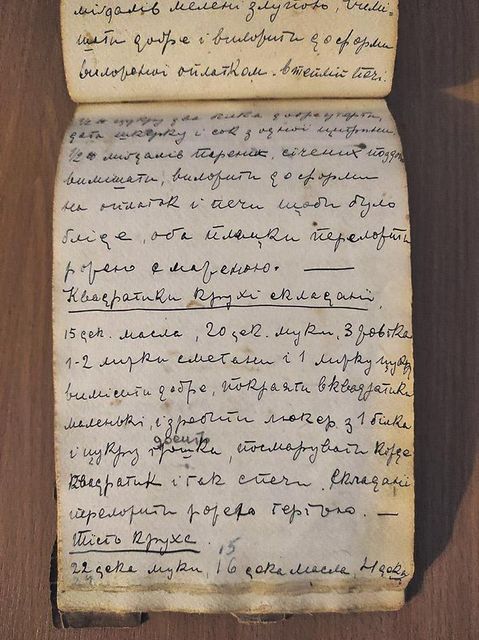 миґдалів мелені з лупою, вимі-
шати добре і виложити до форми
виложеної оплатком. в теплій печі.
½ ф цукру два білка добре утерти,
дати шкірку і сок з одної цитрини
½ ф миґдалів парених, січених
вимішати, виложити до форми
на оплаток і печи щоби було
бліде, оба пляцки переложити
рожею смаженою. —
Квадратики крухі складані
15 дек. масла, 20 дек. муки, 3 жовтка
1-2 лижки сметани і 1 лижку цукру
вимісити добре, покраяти в квадратики
маленькі, і зробити люкер з 1 білка
і цукру трошка, досить посмарувати кожде
квадратик і так спечи. Складані
переложити рожею тертою. —
Тісто крухе.
22 дека муки, 16 15 дека масла, 11 дека